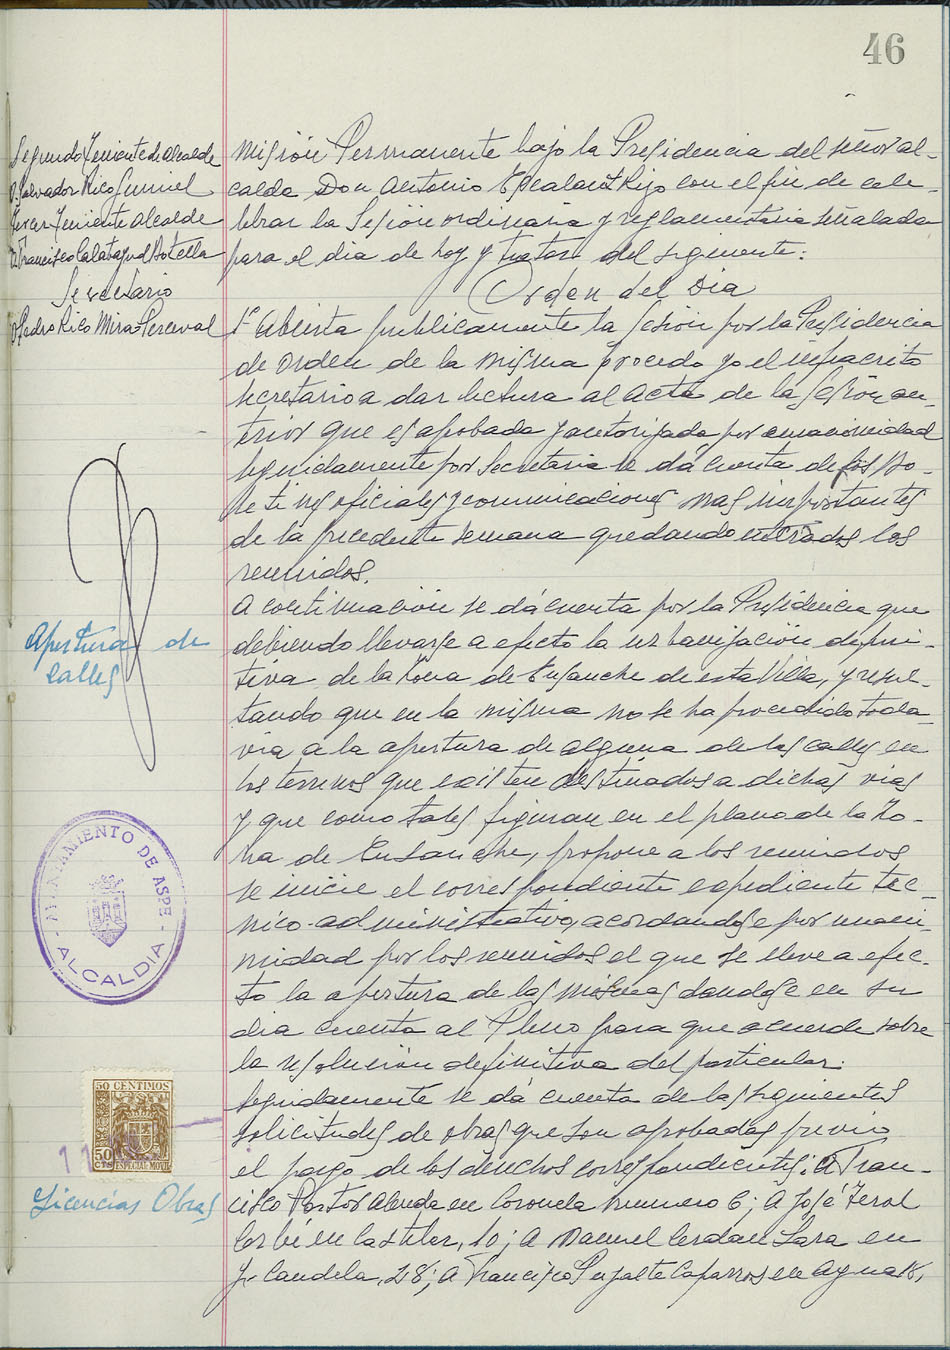 46
Segundo Teniente de alcalde
D. Salvador Rico Gumiel
Tercer Teniente Alcalde
D. Francisco Calatayud Botella
Secretario
D. Pedro Rico Mira-Perceval
misión Permanente bajo la Presidencia del señor al-
calde Don Antonio con el fin de cele-
brar la Sesión ordinaria y reglamentaria señalada
para el dia de hoy y tratar del siguiente:
Orden del Dia
1º Abierta publicamente la sesión por la Presidencia
de orden de la misma procedo yo el infrascrito
secretario a dar lectura al acta de la sesión an-
terior que es aprobada y autorizada por unanimidad
seguidamente por Secretaria se dá cuenta de los Bo-
letines oficiales y comunicaciones mas importantes
de la precedente semana quedando enterados los
reunidos.
Apertura de
calles
A continuación se dá cuenta por la Presidencia que
debiendo llevarse a efecto la urbanización defini-
tiva de la Zona de Ensanche de esta Villa, y resul-
tando que en la misma no se ha procedido toda-
via a la apertura de alguna de las calles en
los terrenos que existen destinados a dichas vias
y que como tales figuran en el plano de la Zo-
na de Ensanche, propone a los reunidos
se inicie el correspondiente expediente tec-
nico-administrativo, acordandose por unani-
midad por los reunidos el que se lleve a efec-
to la apertura de las mismas dandose en su
dia cuenta al Pleno para que acuerde sobre
la resolución definitiva del particular.
AYUNTAMIENTO DE ASPE
- ALCALDIA -
50 CENTIMOS
50
CTS
ESPECIAL MOVIL
Licencias Obras
Seguidamente se dá cuenta de las siguientes
solicitudes de obras que son aprobadas previo
el pago de los derechos correspondientes: A Fran-
cisco Pastor Abenda en Coronela numero 6; A José Terol
Cerbi en Castelar, 10; A Manuel Cerdan Lara en
Candela, 28; A Francisco Caparros en